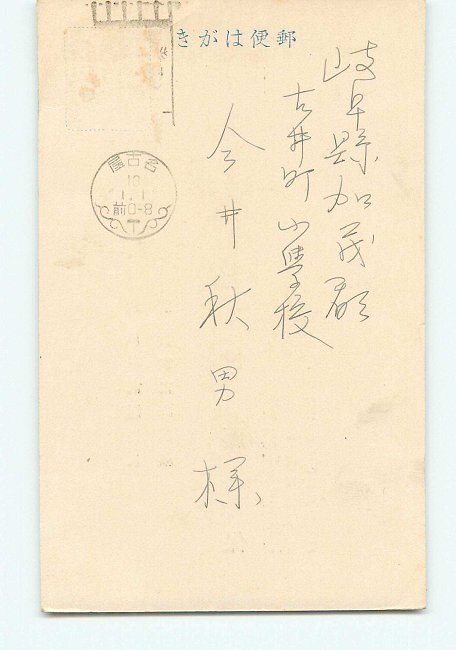 郵便はがき
岐阜縣加茂郡
古井町小學校
今井秋男様
名古屋
16
1.1
前0-8